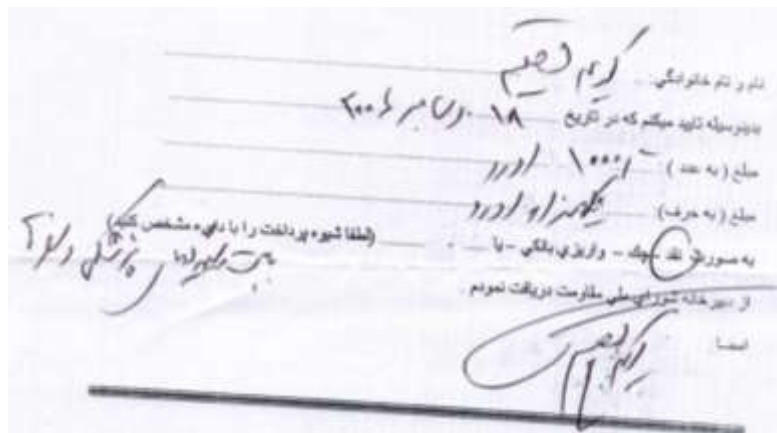 نام و نام خانوادگی: کریم قصیم
بدینوسیله تایید میکنم که در تاریخ ۱۸ دسامبر ۲۰۰۶
مبلغ ( به عدد ) ۱۰۰۰ اورو
مبلغ ( به حرف) یکهزار اورو
به صورت نقد - چک - واریزی بانکی - یا (لطفا شیوه پرداخت را با دایره مشخص کنید)
بابت
از دبیرخانه شورای ملی مقاومت دریافت نمودم .
امضا
کریم قصیم